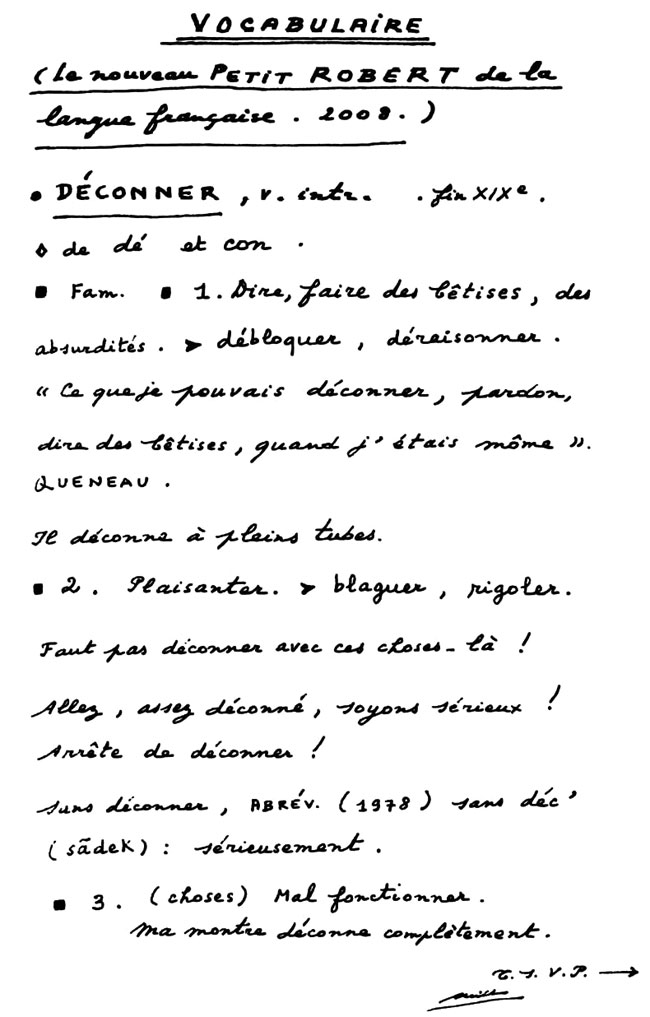 VOCABULAIRE
(Le nouveau PETIT ROBERT de la
langue française . 2008 . )
• DÉCONNER , v. intr. . fin XIXe .
◊ de dé et con .
■ Fam. ■ 1. Dire, faire des bêtises, des
absurdités . ➤ débloquer , déraisonner .
« Ce que je pouvais déconner, pardon,
dire des bêtises, quand j'étais môme ».
QUENEAU .
Il déconne à pleins tubes.
■ 2 . Plaisanter. ➤ blaguer , rigoler.
Faut pas déconner avec ces choses-là !
Allez , assez déconné, soyons sérieux !
Arrête de déconner !
Sans déconner , ABRÉV. (1978) sans déc'
(sãdek) : sérieusement .
■ 3 . (choses) Mal fonctionner .
Ma montre déconne complètement .
T. S. V. P. →